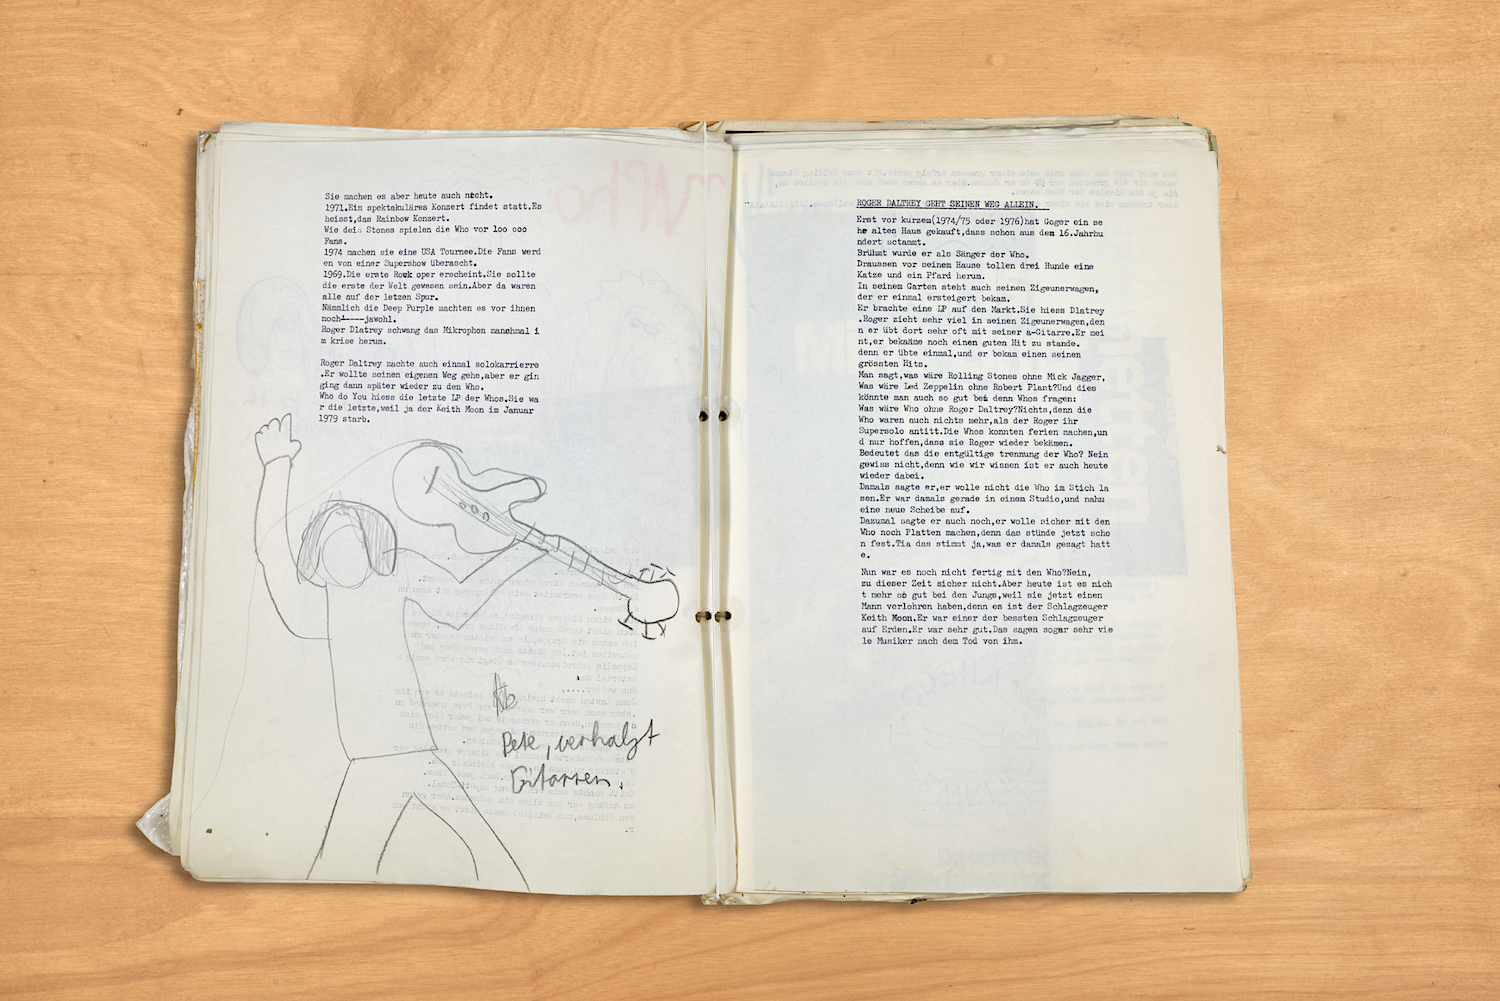 Sie machen es aber heute auch nicht.
1971.Ein spektakuläres Konzert findet statt.Es
heisst,das Rainbow Konzert.
Wie dei Stones spielen die Who vor 1oo ooo
Fans.
1974 machen sie eine USA Tournee.Die Fans werd
en von einer Supershow überascht.
1969.Die erste Rock oper erscheint.Sie sollte
die erste der Welt gewesen sein.Aber da waren
alle auf der letzen Spur.
Nämmlich die Deep Purple machten es vor ihnen
noch-----jawohl.
Roger Dlatrey schwang das Mikrophon manchmal i
m krise herum.
Roger Daltrey machte auch einmal solokarrierre
.Er wollte seinen eigenen Weg gehe,aber er gin
ging dann später wieder zu den Who.
Who do You hiess die letzte LP der Whos.Sie wa
r die letzte,weil ja der Keith Moon im Januar
1979 starb.
Pete, verhalgt
Gitarren.
ROGER DALTREY GEHT SEINEN WEG ALLEIN.
Erst vor kurzem(1974/75 oder 1976)hat Goger ein se
hr altes Haus gekauft,dass schon aus dem 16.Jahrhu
ndert sctammt.
Brühmt wurde er als Sänger der Who.
Draussen vor seinem Hause tollen drei Hunde eine
Katze und ein Pfard herum.
In seinem Garten steht auch seinen Zigeunerwagen,
der er einmal ersteigert bekam.
Er brachte eine LP auf den Markt.Sie hiess Dlatrey
.Roger zieht sehr viel in seinen Zigeunerwagen,den
n er übt dort sehr oft mit seiner a-Gitarre.Er mei
nt,er bekääme noch einen guten Hit zu stande.
denn er übte einmal,und er bekam einen seinen
grössten Hits.
Man sagt,was wäre Rolling Stones ohne Mick Jagger,
Was wäre Led Zeppelin ohne Robert Plant?Und dies
könnte man auch so gut bei denn Whos fragen:
Was wäre Who ohne Roger Daltrey?Nichts,denn die
Who waren auch nichts mehr,als der Roger ihr
Supersolo antitt.Die Whos konnten ferien machen,un
d nur hoffen,dass sie Roger wieder bekämen.
Bedeutet das die entgültige trennung der Who? Nein
gewiss nicht,denn wie wir wissen ist er auch heute
wieder dabei.
Damals sagte er,er wolle nicht die Who im Stich la
sen.Er war damals gerade in einem Studio,und nahm
eine neue Scheibe auf.
Dazumal sagte er auch noch,er wolle sicher mit den
Who noch Platten machen,denn das stünde jetzt scho
n fest.Tia das stimmt ja,was er damals gesagt hatt
e.
Nun war es noch nicht fertig mit den Who?Nein,
zu dieser Zeit sicher nicht.Aber heute ist es nich
t mehr so gut bei den Jungs,weil sie jetzt einen
Mann verlohren haben,denn es ist der Schlagzeuger
Keith Moon.Er war einer der bessten Schlagzeuger
auf Erden.Er war sehr gut.Das sagen sogar sehr vie
le Musiker nach dem Tod von ihm.